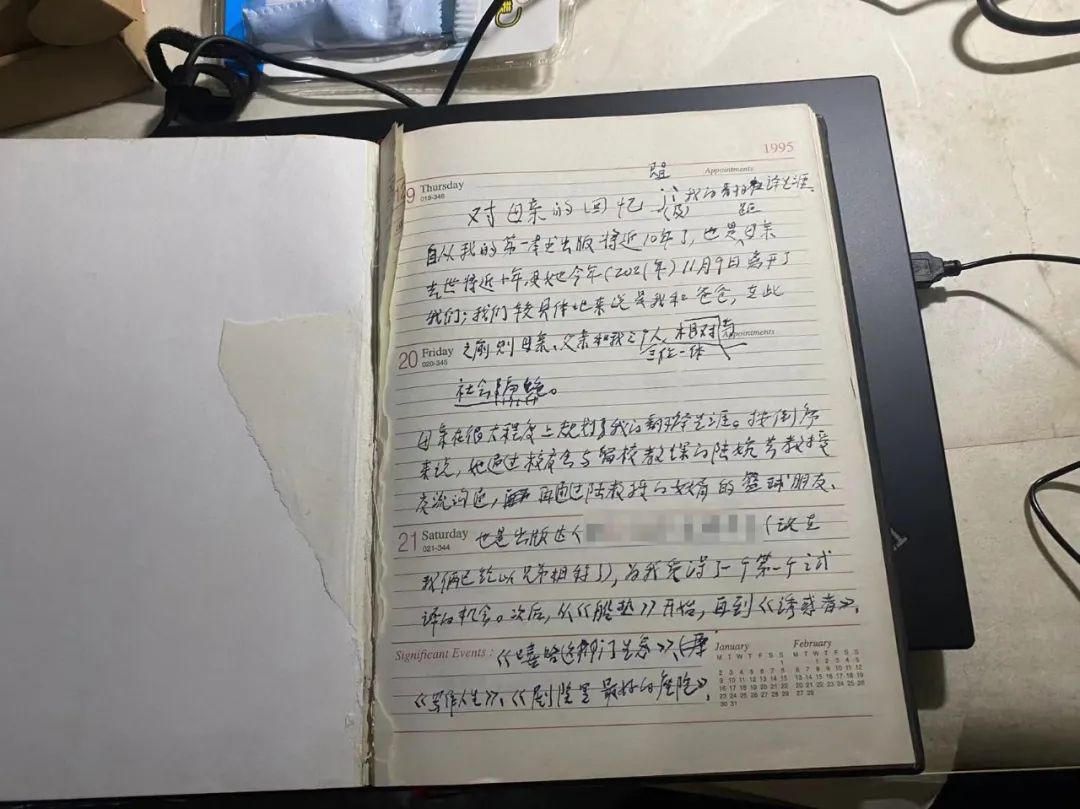 1995
Appointments
19 Thursday
019-346
对母亲的回忆 (及) 我的翻译生涯
自从我的第一本书出版将近10年了,也是母亲
去世将近十年,她今年(2021年)11月9日离开了
我们;我们较具体地来说是我和爸爸,在此
20 Friday
020-345
之前则母亲、父亲和我三个人,相对与
Appointments
三位一体
社会隔绝。
母亲在很大程度上规划了我的翻译生涯。按倒序
来说,她通过校友会与留校教课的陆教授
交流沟通,再通过陆教授的女婿的篮球朋友、
21 Saturday
021-344
也是出版达人 (现在
我俩已经以兄弟相称了),为我觅得了一个第一个试
译的机会。次后,从《脸垫》开始,再到《诱惑者》、
Significant Events :
《嘻哈这门生意》、
《写作人生》、《剧院里最好的座位》、
January
M T W T F S S
1
2 3 4 5 6 7 8
9 10 11 12 13 14 15
16 17 18 19 20 21 22
23 24 25 26 27 28 29
30 31
February
M T W T F S S
1 2 3 4 5
6 7 8 9 10 11 12
13 14 15 16 17 18 19
20 21 22 23 24 25 26
27 28